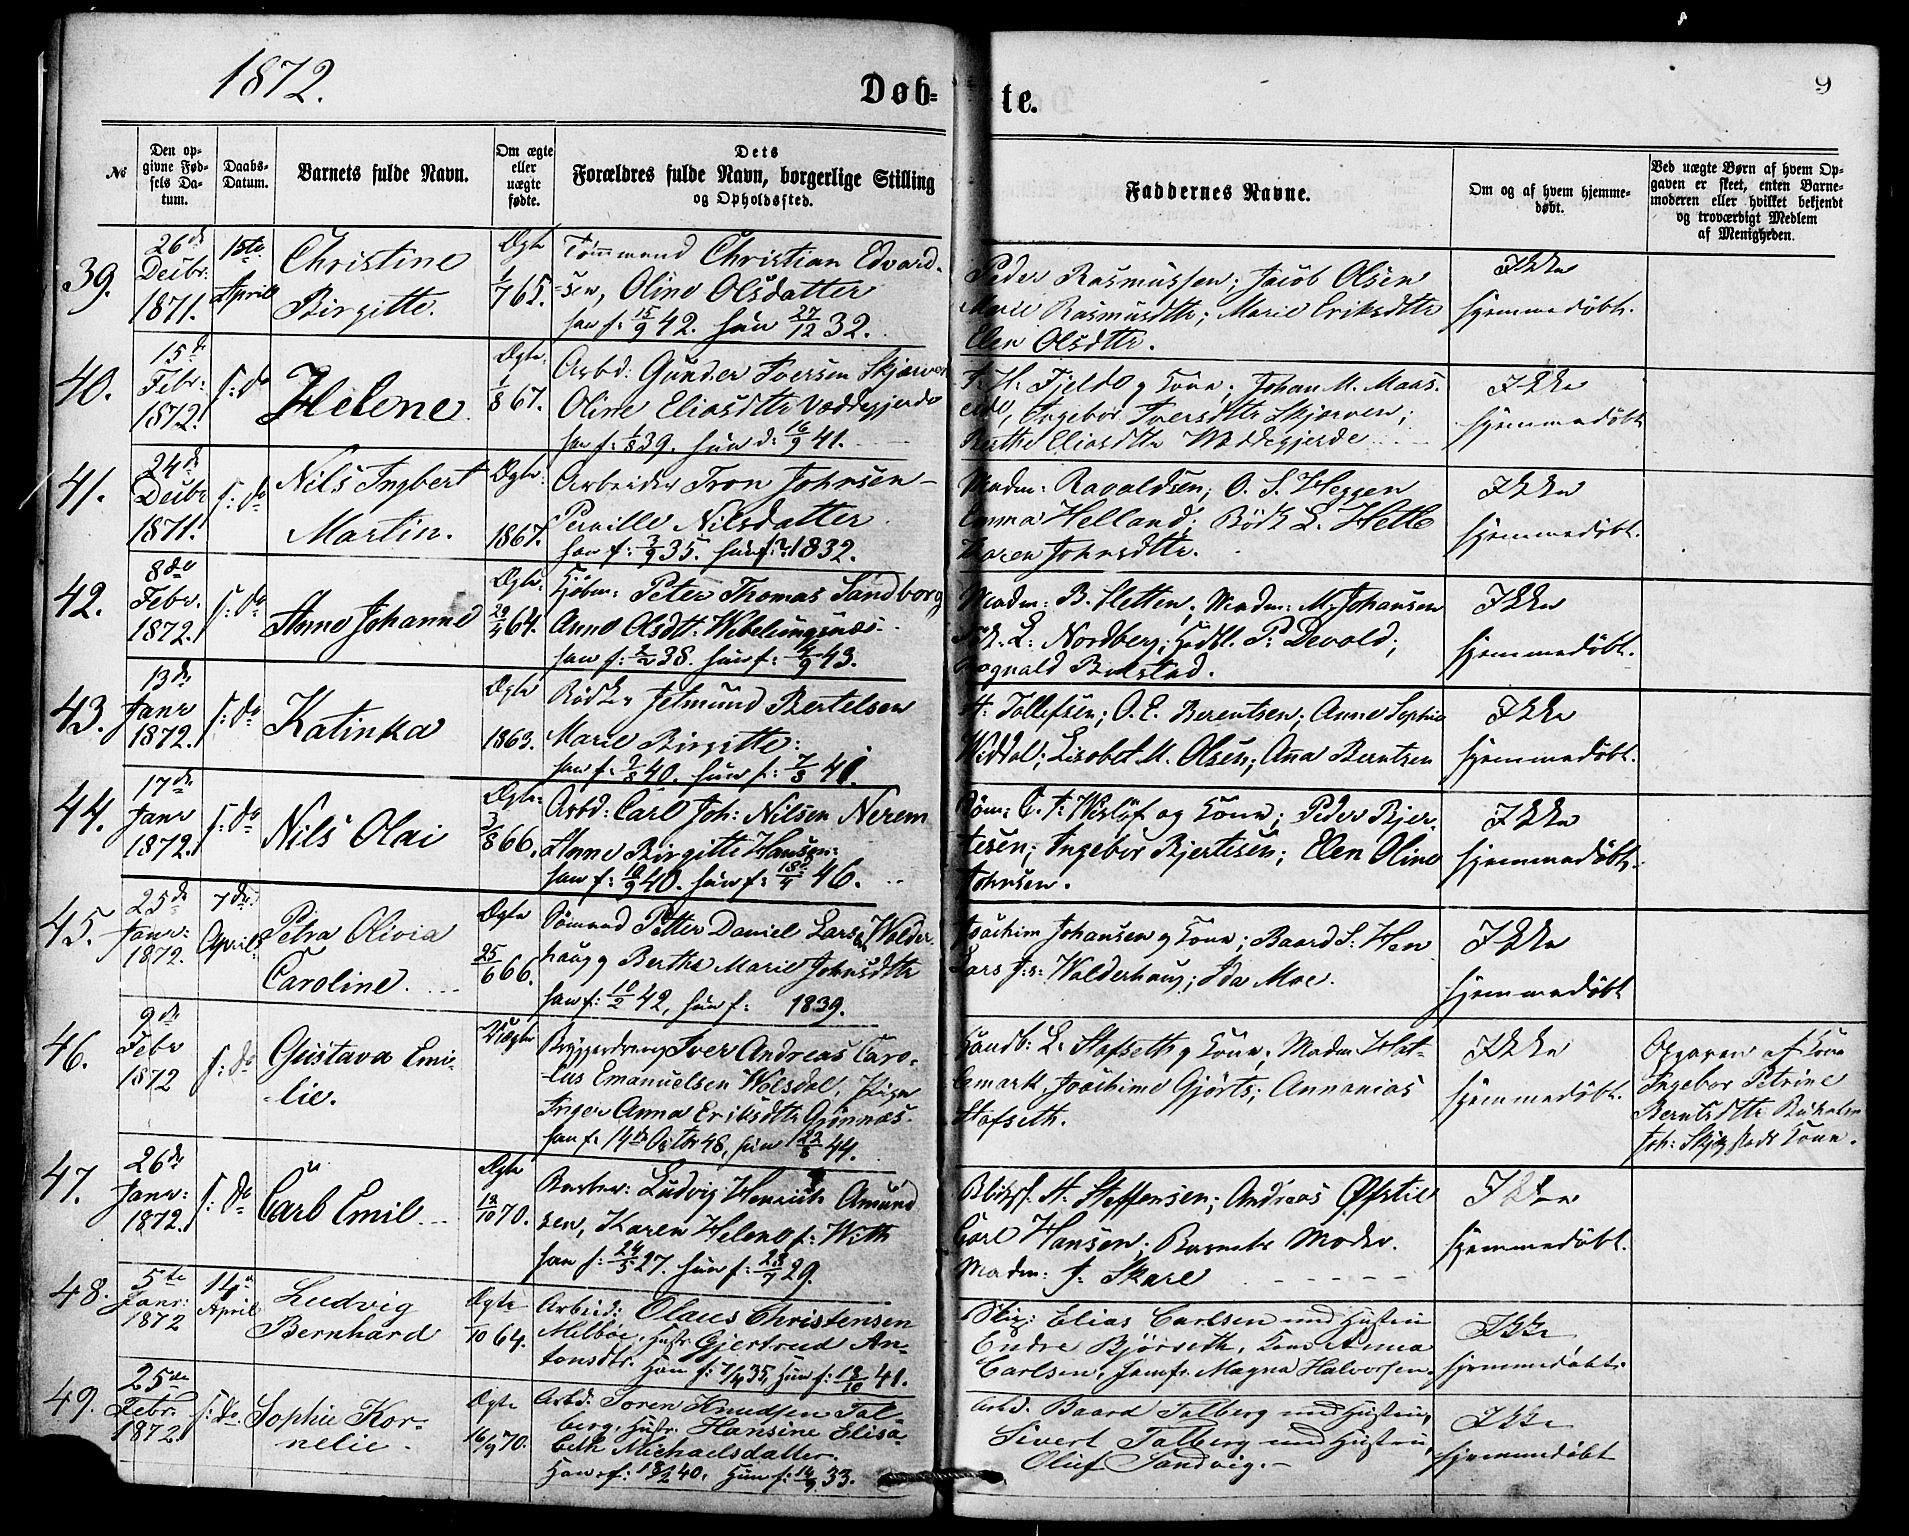 1872.
Døb-
te.
9
№
Den op-
givne Fød-
sels Da-
tum.
Daabs-
Datum.
Barnets fulde Navn.
Om ægte
eller
uægte
fødte.
Dets
Forældres fulde Navn, borgerlige Stilling
og Opholdssted.
Faddernes Navne.
Om og af hvem hjemme-
døbt.
Ved uægte Børn af hvem Op-
gaven er skeet, enten Barne-
moderen eller hvilket bekjendt
og troværdigt Medlem
af Menigheden.
39.
26de
Decbr.
1871.
1ste
April
Christine
Birgitte.
Ægte
1/7 65.
Tømmermand Christian Edvard-
sen, Oline Olsdatter
han f: 15/9 42. hun 27/12 32.
Peder Rasmussen; Jacob Olsen
Marie Rasmusdttr; Marie Eriksdttr
Elen Olsdttr.
Ikke
hjemmedøbt.
40.
15de
Febr:
1872.
s: D
Helene
Ægte
1/8 67.
Arbd: Gunder Iversen Skjærven
Oline Eliasdttr Væddegjerde
han f: 1/8 39. hun d: 16/9 41.
Fjeld og Kone; Johan M. Maas-
eide, Ingebor Iversdttr Skjærven;
Eliasdttr Væddegjerde
Ikke
hjemmedøbt
41.
24de
Decbr
1871.
s: D
Nils Ingbert
Martin.
Ægte
1867.
Arbeider Tron Johnsen
Pernille Nilsdatter
han f: 3/9 35. hun f: 1832.
Madm: Ravaldsen; O. S. Heggen
Emma Helland; Bødk L. Hetle
Karen Johnsdttr.
Ikke
hjemmedøbt.
42.
8de
Febr.
1872.
s: D
Anne Johanne
Ægte.
29/4 64.
Kjøbm: Peter Thomas Sandborg
Anne Olsdtt: Veblungsnæs.
han f: 2/2 38. hun f: 4/9 43.
Madm: B. Sletten; Madm: M. Johansen
L: Nordberg; P: Devold;
Rognald Bolstad.
Ikke
hjemmedøbt.
43.
13de
Janr
1872.
s: D
Katinka
Ægte
1863.
Bødker Jetmund Bertelsen
Marie Birgitte:
han f: 40. hun f: 7/3 41.
H: Tollefsen; O. E. Berentsen; Anne Sophie
Widdal; Lisabet M. Olsen; Anna Berntsen
Ikke
hjemmedøbt.
44.
17de
Janr
1872.
s: D
Nils Olai
Ægte:
3/8 66.
Arbd: Carl Joh: Nilsen Nerem
Anne Birgitte Hansen:
han f: 10/9 40. hun f: 18/4 46.
og Kone; Peder Bjer-
tesen; Ingebor Bjertesen; Elen Oline
Johnsen.
Ikke
hjemmedøbt.
45.
25de
Janr:
1872.
7de
April:
Petra Olivia
Caroline.
Ægte
25/6 66.
Sømand Petter Daniel Larsen Walder-
haug og Berthe Marie Johnsdttr
han f: 10/2 42, hun f: 1839.
Joachim Johansen og Kone; Baard S: Hen
Lars J:s: Walderhaug; Ida Moe.
Ikke
hjemmedøbt
46.
9de
Febr
1872
s: D
Gustava Emi-
lie.
Uægte
Bryggerdreng Iver Andreas Caro-
lus Emanuelsen Wolsdal, Pige
Inger Anna Eriksdttr Grønnæs.
han f: 14de Octbr 48, hun 22/8 44.
L: Hofseth og Kone; Madm Hat-
lemark, Joachime Gjørts; Annanias
Hofseth.
Ikke
hjemmedøbt.
Opgaven af Kone
Ingebor Petrine
Berntsdttr
Kone.
47.
26de
Janr:
1872.
s: D
Carl Emil
Ægte
13/10 70.
Ludvig Henrich Amund
sen, Karen Helene f: With
han f: 24/5 27. hun f: 23/7 29.
H: Steffensen; Andreas Øfstie
Carl Hansen; Barnets Moder.
Madm: J: Skare
Ikke
hjemmedøbt.
48.
5te
Janr:
1872
14de
April
Ludvig
Bernhard
Ægte
/10 64.
Arbeid: Olaus Christensen
Melbøe, Hustr Gjertrud An-
tonsdtr. Han f: 7/4 35, Hun f: 18/10 41.
Elias Carlsen med Hustru
Endre Bjørseth, Kone Anna
Carlsen, Jomfr. Magna Halvorsen.
Ikke
hjemmedøbt.
49.
25de
Febr.
1872.
s: D.
Sophie Kor-
nelie.
Ægte
16/9 70.
Arbd: Søren Knudsen Tal-
berg, Hustr. Hansine Elisa-
beth Michaelsdatter.
Han f: 18/2 40, Hun f: 14/9 33.
Arbd. Baard Talberg med Hustru,
Sivert Talberg med Hustru,
Oluf Sandvig.
Ikke
hjemmedøbt